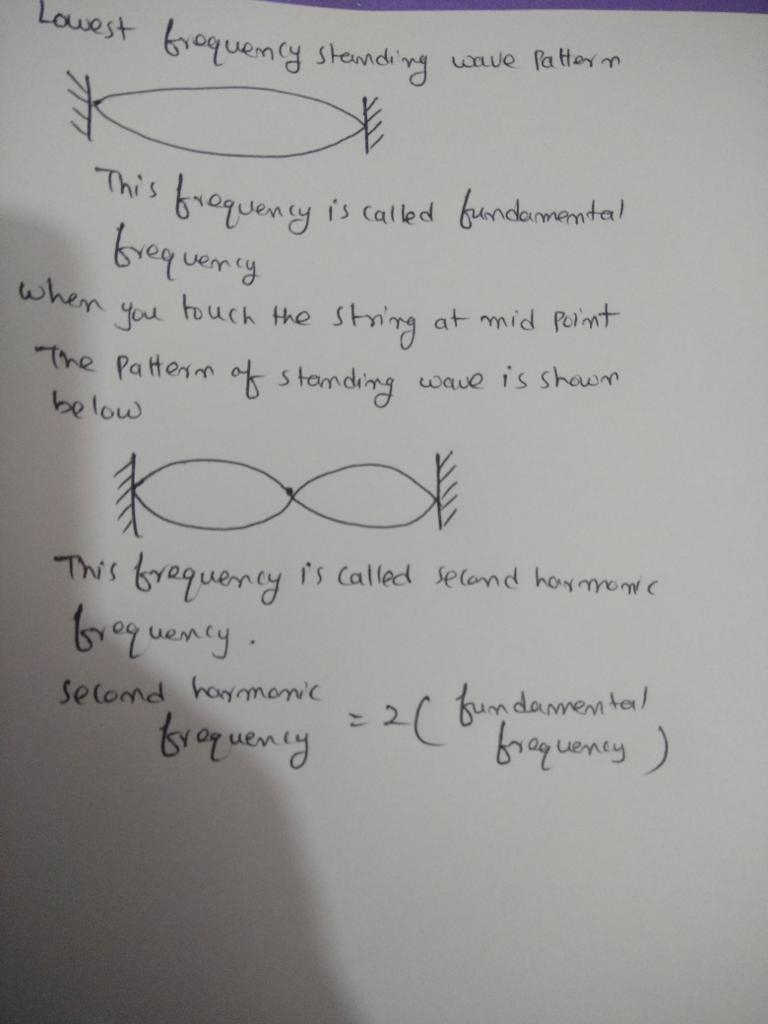 Lowest frequency standing wave pattern
This frequency is called fundamental
frequency
when you touch the string at mid point
The pattern of standing wave is shown
below
This frequency is called second harmonic
frequency.
second harmonic
frequency = 2 ( fundamental
frequency )